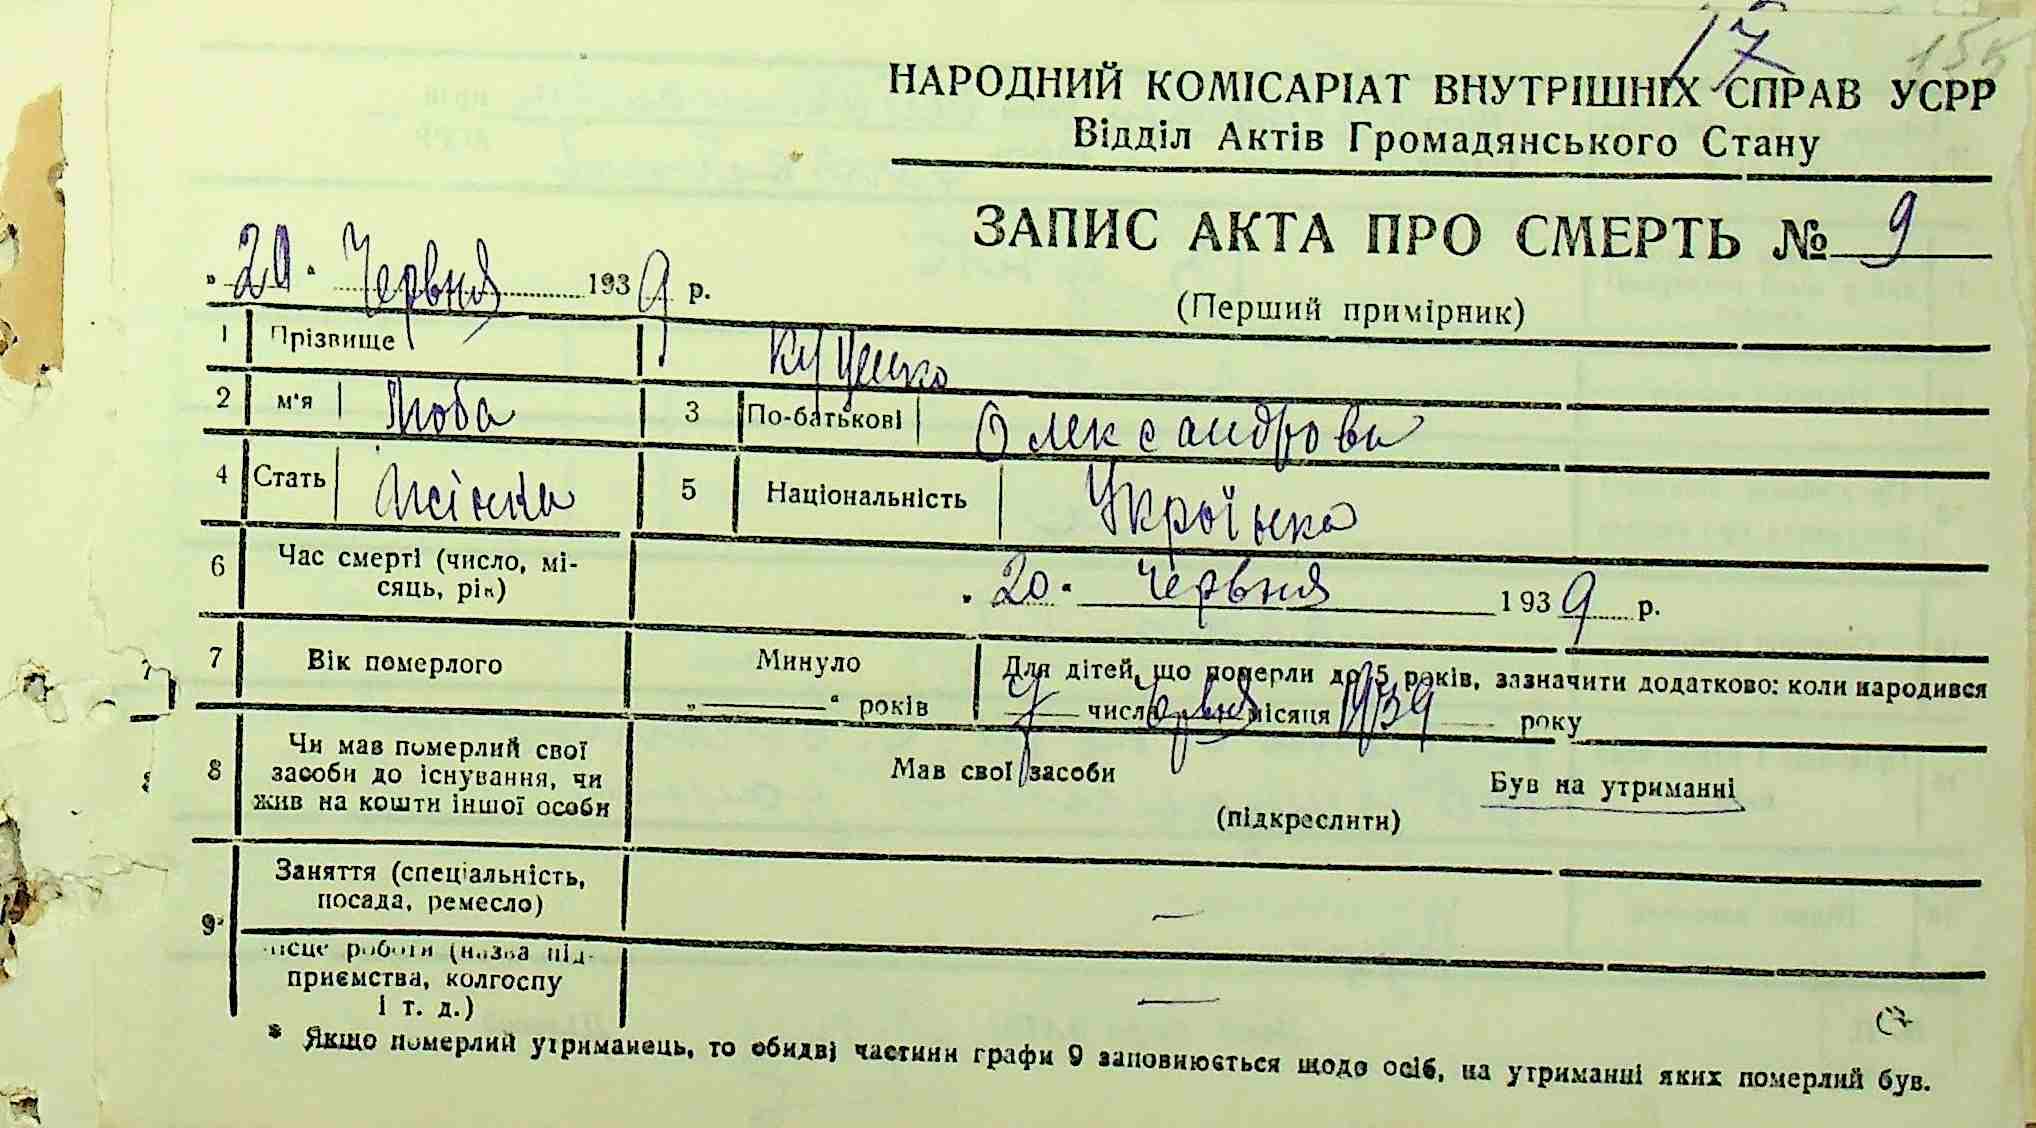 17 155
НАРОДНИЙ КОМІСАРІАТ ВНУТРІШНІХ СПРАВ УСРР
Відділ Актів Громадянського Стану
ЗАПИС АКТА ПРО СМЕРТЬ № 9
„20“ Червня 1939 р.
(Перший примірник)
1 Прізвище Куценко
2 м'я Люба 3 По-батькові Олександровн
4 Стать Жінка 5 Національність Українка
6 Час смерті (число, мі-
сяць, рік) „20“ Червня 1939 р.
7 Вік померлого Минуло Для дітей, що померли до 5 років, зазначити додатково: коли народився
„ “ років числа Червня місяця 1939 року
8 Чи мав померлий свої
засоби до існування, чи
жив на кошти іншої особи
Мав свої засоби Був на утриманні
(підкреслити)
9 Заняття (спеціальність,
посада, ремесло) —
ісце роботи (назва під-
приємства, колгоспу
і т. д.) —
* Якщо померлий утриманець, то обидві частини графи 9 заповнюється щодо осіб, на утриманні яких померлий був.